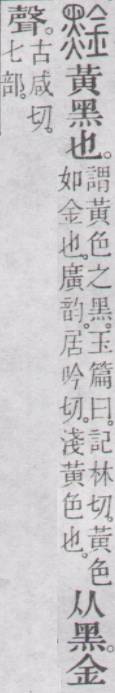 黃黑也。
謂黃色之黑。玉篇曰。記林切。黃色
如金也。廣韵。居吟切。淺黃色也。
从黑。金
聲。
古咸切。
七部。